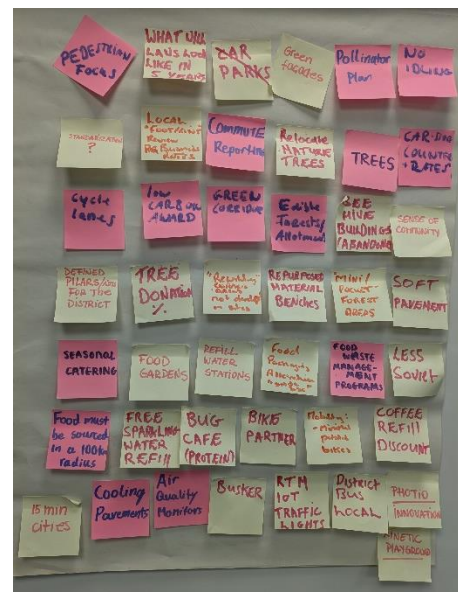 PEDESTRIAN
FOCUS
WHAT WILL
LAWS LOOK
LIKE IN
5 YEARS
CAR
PARKS
Green
facades
Pollinator
Plan
NO
IDLING
STANDARDIZATION
?
LOCAL
"FOOTPRINT"
Review
Commute
Reporting
Relocate
NATURE
TREES
TREES
COUNTER
RATES
Cycle
Lanes
Low
CARBON
AWARD
GREEN
CORRIDOR
Edible
Forests/
Allotment
BEE
HIVE
BUILDINGS
(ABANDONED)
SENSE OF
COMMUNITY
DEFINED
PILLARS
FOR THE
DISTRICT
TREE
DONATION
%
REPURPOSED
MATERIAL
BENCHES
"MINI/
POCKET"
FOREST
AREAS
SOFT
PAVEMENT
SEASONAL
CATERING
FOOD
GARDENS
REFILL
WATER
STATIONS
Food
FOOD
WASTE
MANAGE-
MENT
PROGRAMS
LESS
Soviet
Food must
be sourced
in a 100km
radius
FREE
SPARKLING
WATER
REFILL
BUG
CAFE
(PROTEIN)
BIKE
PARTNER
COFFEE
REFILL
DISCOUNT
15 min
cities
Cooling
Pavements
Air
Quality
Monitors
BUSKER
RTM
IoT
TRAFFIC
LIGHTS
District
Bus
LOCAL
PHOTIO
INNOVATION
KINETIC
PLAYGROUND